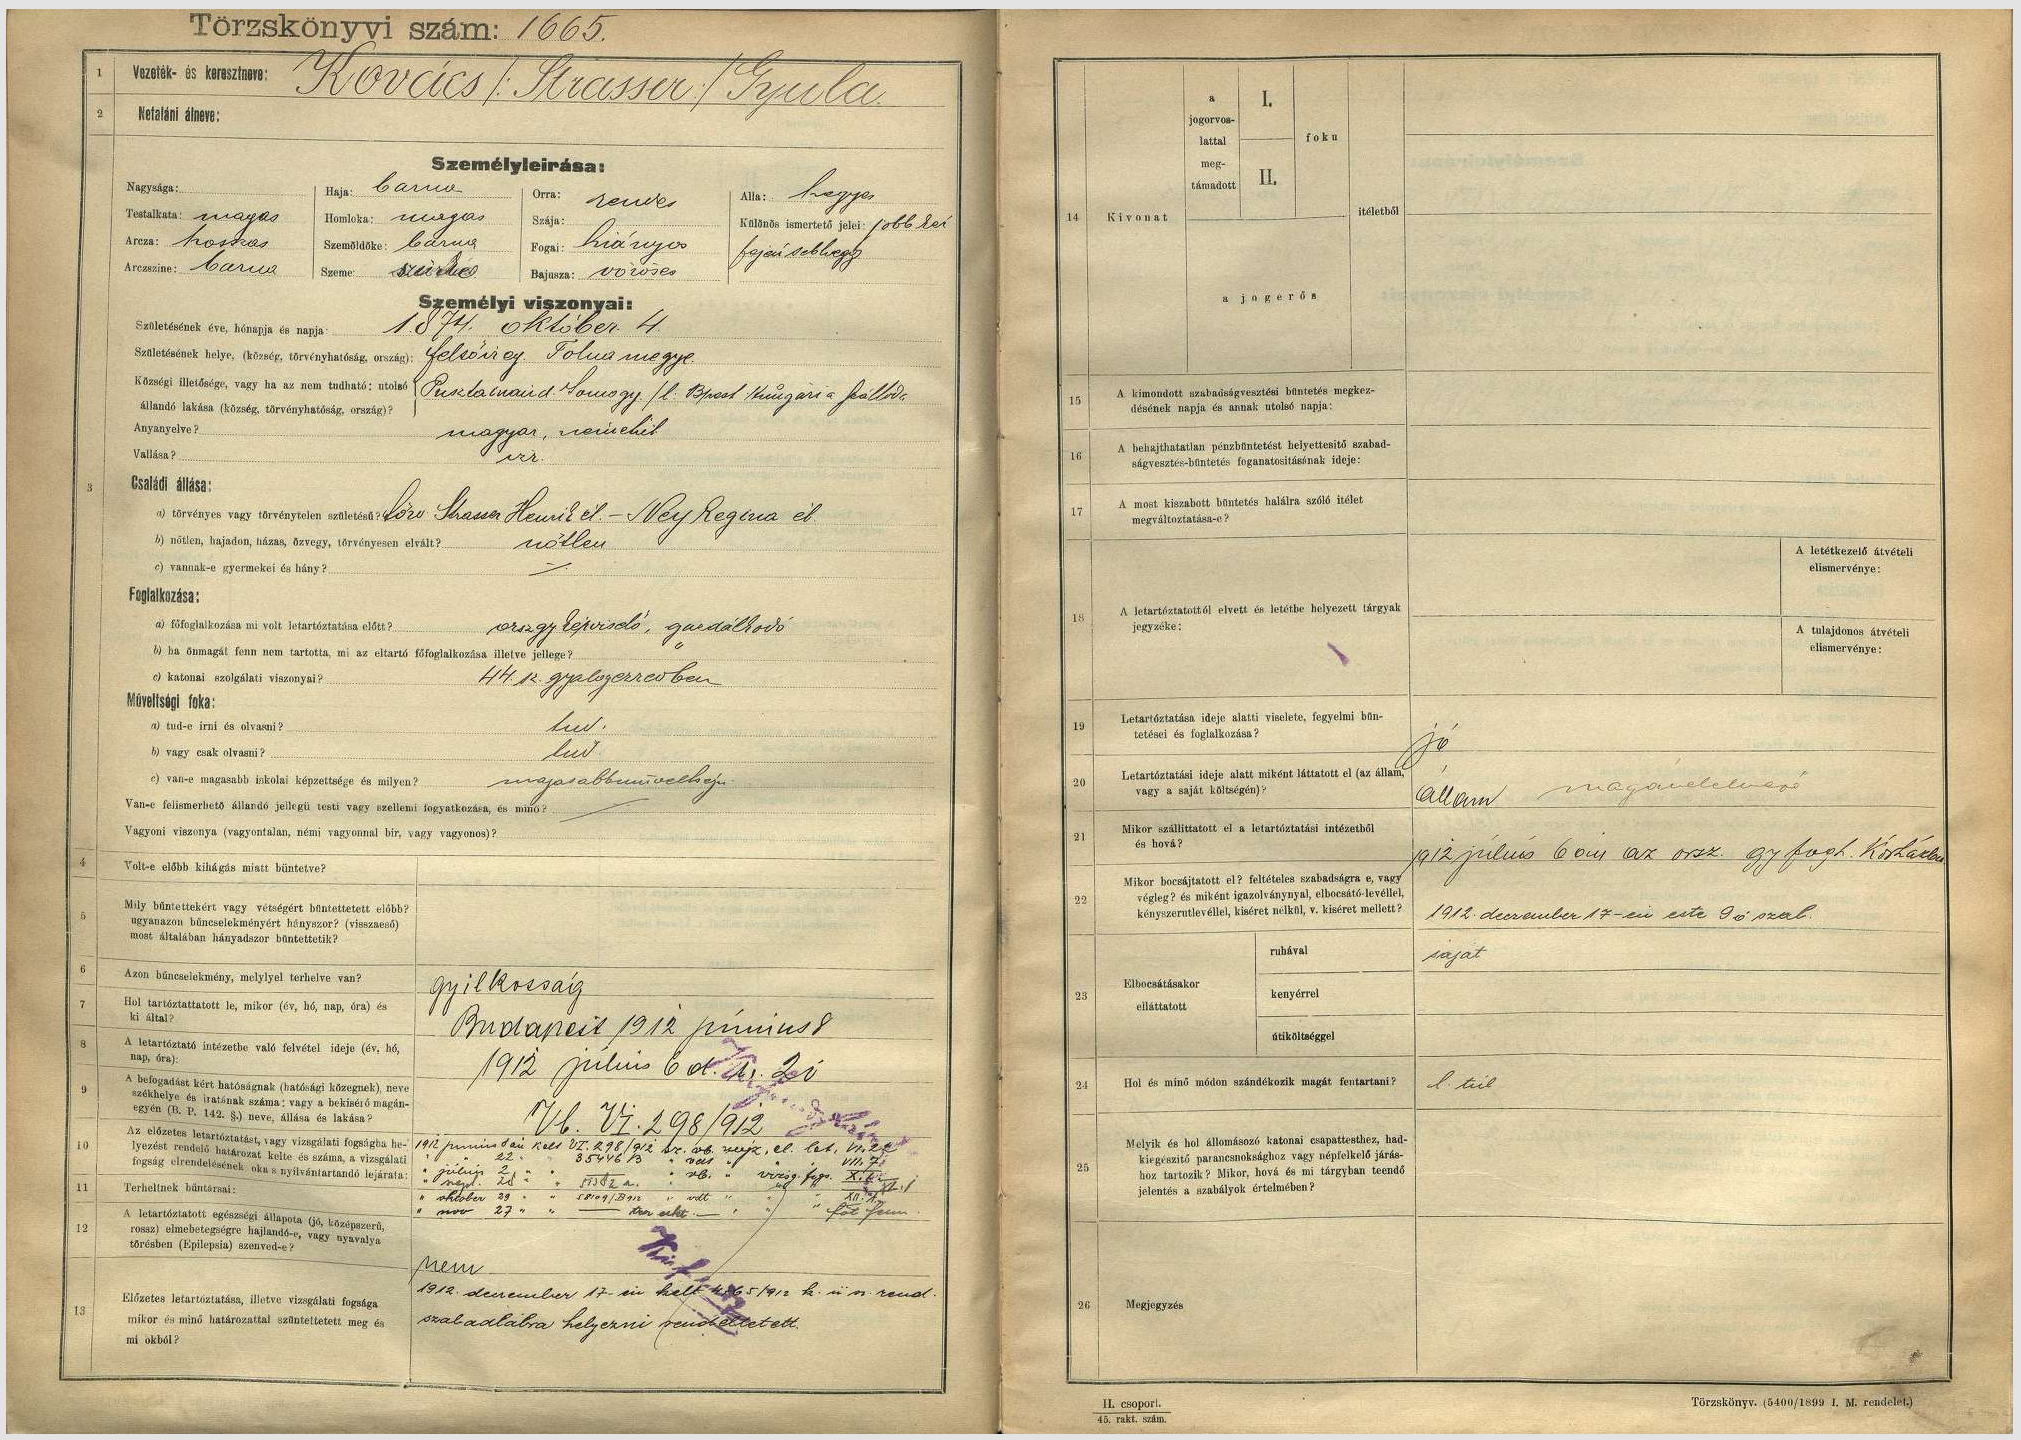 Törzskönyvi szám: 1665.
1 Vezeték- és keresztneve: Kovács /: Strasser :/ Gyula.
2 Netaláni álneve:
Személyleirása:
Nagysága:
Testalkata: magas
Arcza: hosszas
Arczszine: barna
Haja: barna
Homloka: magas
Szemöldöke: barna
Szeme: szürke
Orra: rendes
Szája:
Fogai: hiányos
Bajusza: vöröses
Álla: hegyes
Különös ismertető jelei: jobb kéz
fején sebhegy
3
Személyi viszonyai:
Születésének éve, hónapja és napja: 1874. október 4.
Születésének helye, (község, törvényhatóság, ország): felsőireg. Tolna megye.
Községi illetősége, vagy ha az nem tudható: utolsó
állandó lakása (község, törvényhatóság, ország)? Somogy /l. Bpest Hungária szálloda
Anyanyelve? magyar, németül
Vallása? izr.
Családi állása:
a) törvényes vagy törvénytelen születésű? törv. Strasser Henrik él. – Ney Regina él.
b) nőtlen, hajadon, házas, özvegy, törvényesen elvált? nőtlen
c) vannak-e gyermekei és hány?
Foglalkozása:
a) főfoglalkozása mi volt letartóztatása előtt? orszgy képviselő, gazdálkodó
b) ha önmagát fenn nem tartotta, mi az eltartó főfoglalkozása illetve jellege? "
c) katonai szolgálati viszonyai? 44. k. gyalogezredben
Műveltségi foka:
a) tud-e irni és olvasni? tud.
b) vagy csak olvasni? tud
c) van-e magasabb iskolai képzettsége és milyen?
Van-e felismerhető állandó jellegü testi vagy szellemi fogyatkozása, és minő?
Vagyoni viszonya (vagyontalan, némi vagyonnal bir, vagy vagyonos)?
4 Volt-e előbb kihágás miatt büntetve?
5 Mily büntettekért vagy vétségért büntettetett előbb?
ugyanazon bűncselekményért hányszor? (visszaeső)
most általában hányadszor büntettetik?
6 Azon bűncselekmény, melylyel terhelve van? gyilkosság
7 Hol tartóztattatott le, mikor (év, hó, nap, óra) és
ki által? Budapest 1912 június 8
8 A letartóztató intézetbe való felvétel ideje (év, hó,
nap, óra): 1912 július 6 d. u. 2 ó
9 A befogadást kért hatóságnak (hatósági közegnek), neve
székhelye és iratának száma; vagy a bekisérő magán-
egyén (B. P. 142. §.) neve, állása és lakása? Vb. VI. 298/912
10 Az előzetes letartóztatást, vagy vizsgálati fogságba he-
lyezést rendelő határozat kelte és száma, a vizsgálati
fogság elrendelésének oka s nyilvántartandó lejárata:
1912 június 8 án kelt VI. 298/912 sz. vb. végz. el. let. VI. 22
" " 22 " " 35446/B " vdt " " VII. 7.
" július 2 " " " vb. " vizsg. fogs. X. 6.
" szept. 28 " "
" október 29 " " 58109/B912 " vdt " " " XII. 1.
" nov 27 " "
11 Terheltnek bűntársai:
12 A letartóztatott egészségi állapota (jó, középszerű,
rossz) elmebetegségre hajlandó-e, vagy nyavalya
törésben (Epilepsia) szenved-e? nem
13 Előzetes letartóztatása, illetve vizsgálati fogsága
mikor és minő határozattal szüntettetett meg és
mi okból?
1912. december 17-én kelt 4865/912 k. ü. n. rend.
szabadlábra helyezni rendeltetett.
14 Kivonat
a jogorvos-
lattal
meg-
támadott
I.
II.
foku
a jogerős
itéletből
15 A kimondott szabadságvesztési büntetés megkez-
désének napja és annak utolsó napja:
16 A behajthatatlan pénzbüntetést helyettesitő szabad-
ságvesztés-büntetés foganatositásának ideje:
17 A most kiszabott büntetés halálra szóló itélet
megváltoztatása-e?
18 A letartóztatottól elvett és letétbe helyezett tárgyak
jegyzéke:
A letétkezelő átvételi
elismervénye:
A tulajdonos átvételi
elismervénye:
19 Letartóztatása ideje alatti viselete, fegyelmi bün-
tetései és foglalkozása? jó
20 Letartóztatási ideje alatt miként láttatott el (az állam,
vagy a saját költségén)? állam magánélelmező
21 Mikor szállittatott el a letartóztatási intézetből
és hová? 1912 július 6 án az orsz. gy fogh. Kórházba
22 Mikor bocsájtatott el? feltételes szabadságra e, vagy
végleg? és miként igazolványnyal, elbocsátó-levéllel,
kényszerutlevéllel, kiséret nélkül, v. kiséret mellett? 1912. december 17-én este 9 ó szab.
23 Elbocsátásakor
elláttatott
ruhával saját
kenyérrel
útiköltséggel
24 Hol és minő módon szándékozik magát fentartani? l. túl
25 Melyik és hol állomásozó katonai csapattesthez, had-
kiegészitő parancsnoksághoz vagy népfelkelő járás-
hoz tartozik? Mikor, hová és mi tárgyban teendő
jelentés a szabályok értelmében?
26 Megjegyzés
II. csoport.
45. rakt. szám.
Törzskönyv. (5400/1899 I. M. rendelet.)